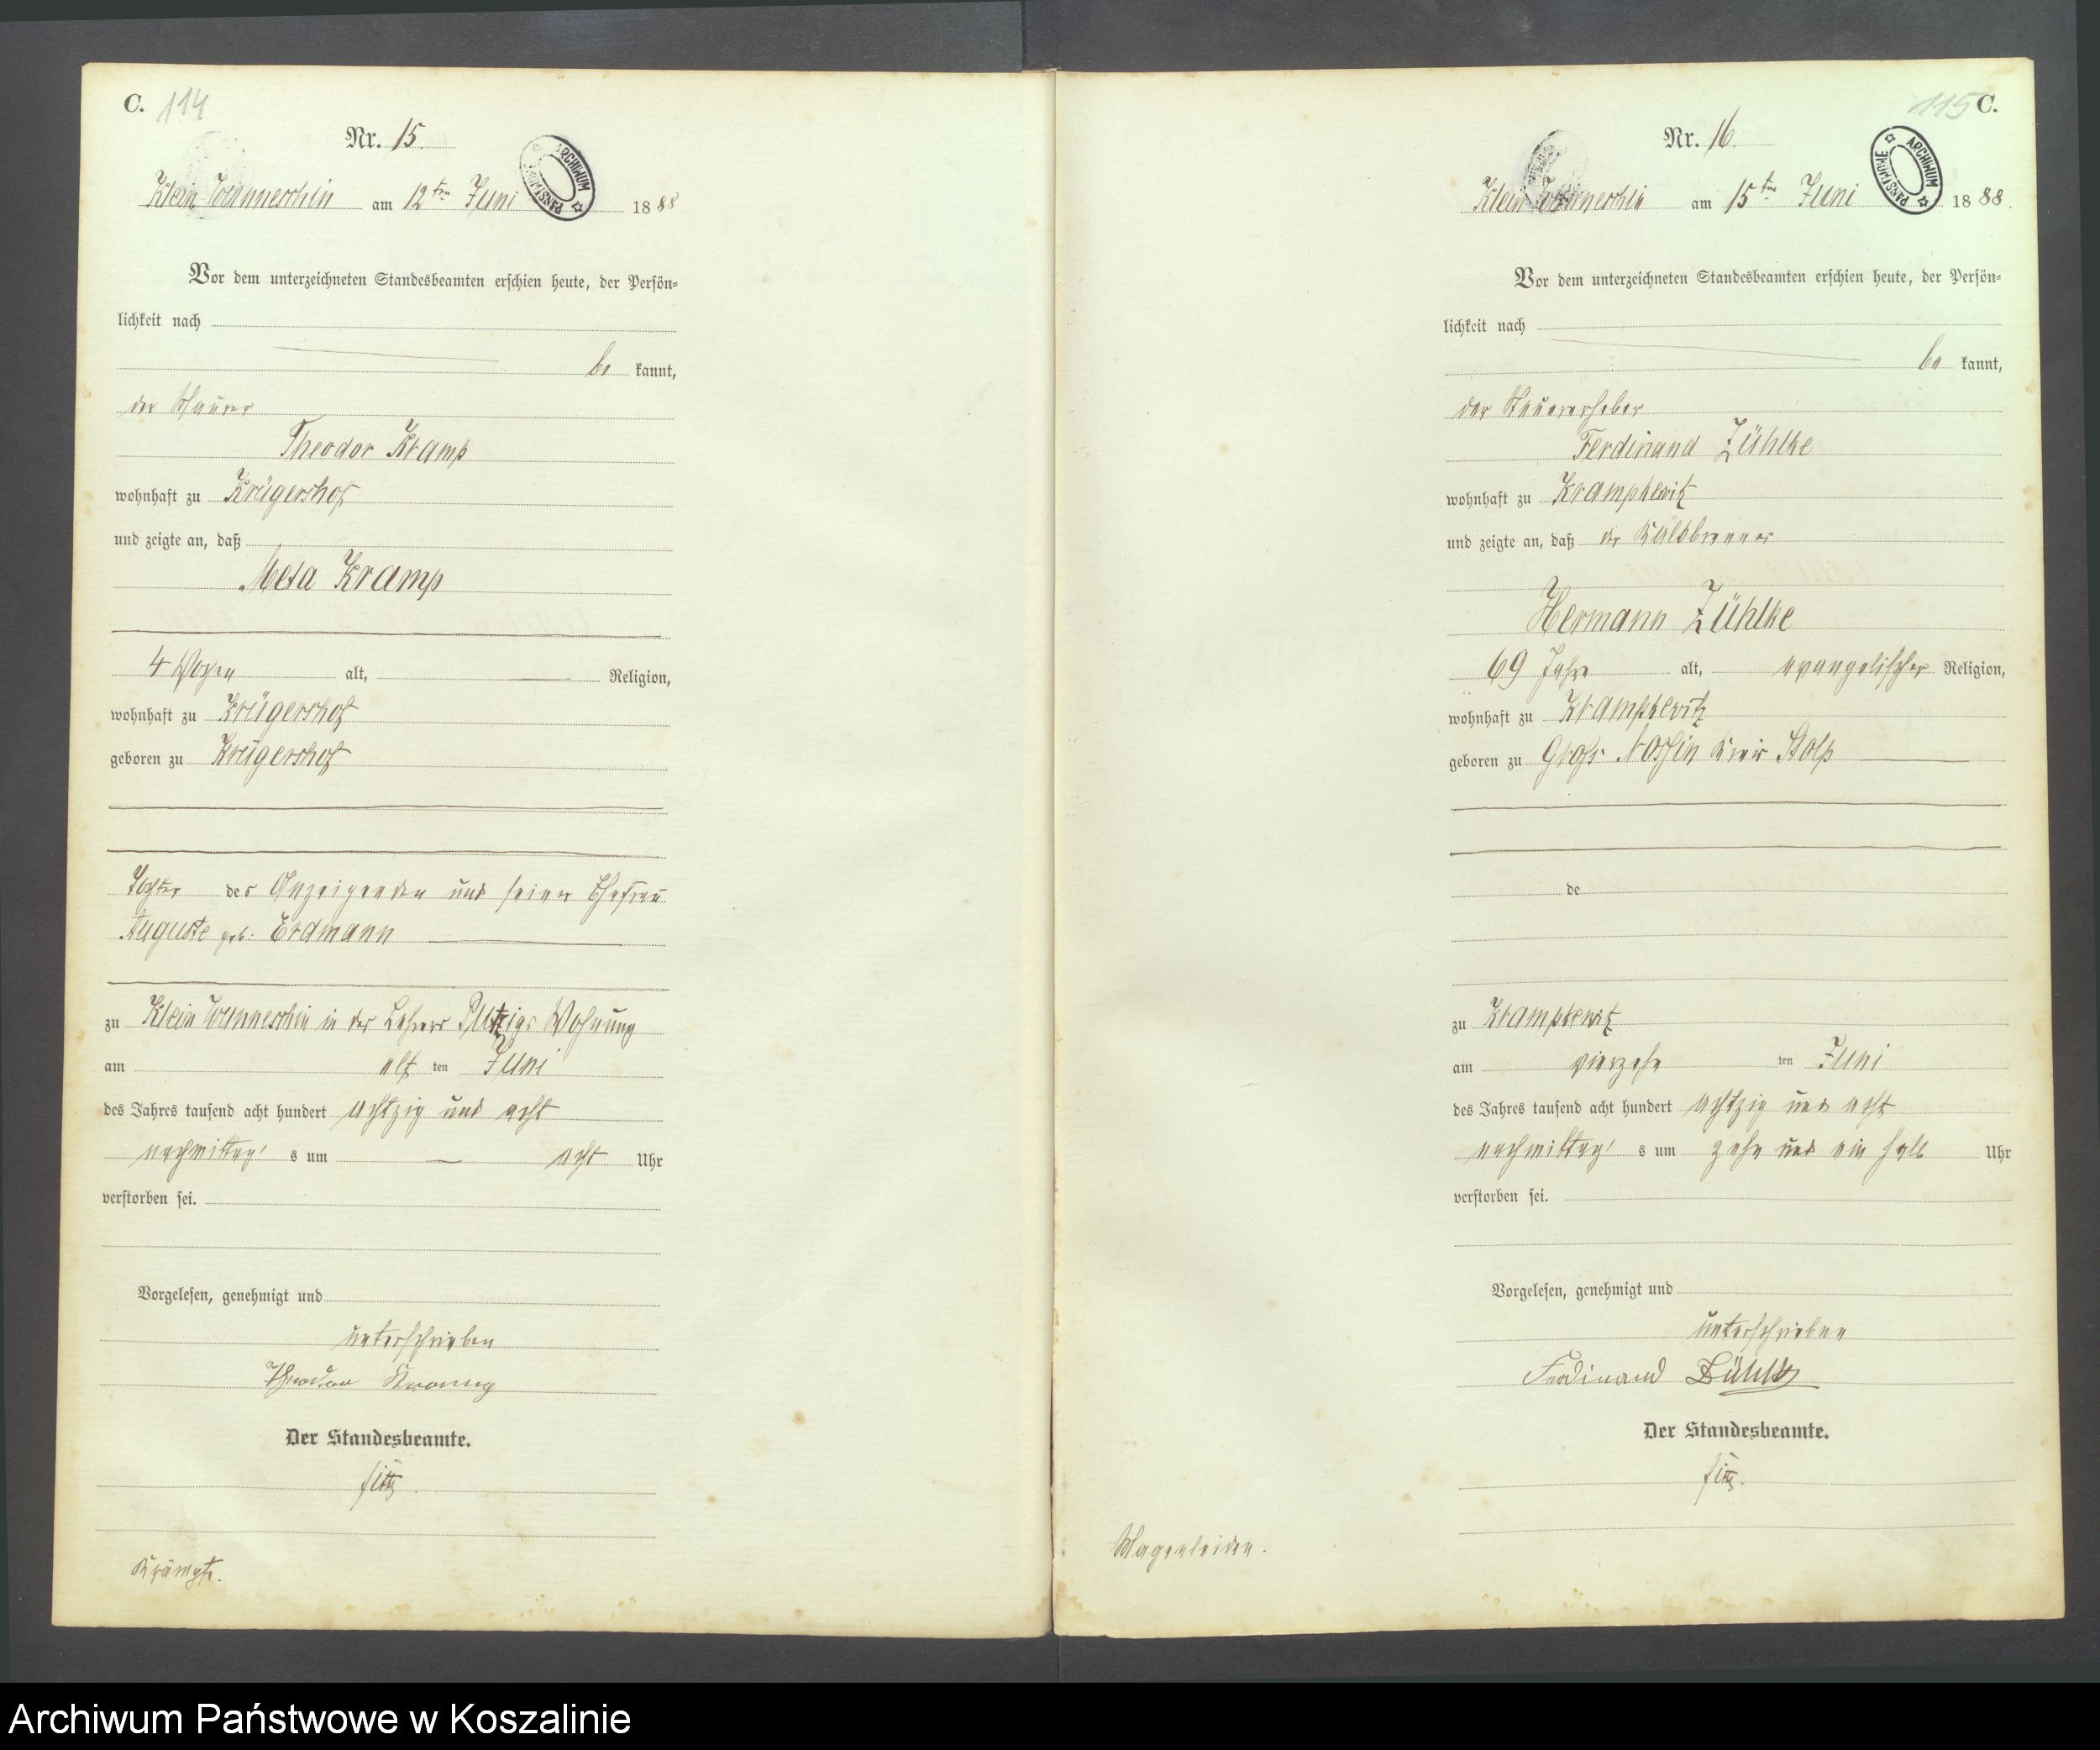 C. 114
Nr. 15.
ARCHIWUM PAŃSTWOWE
Klein Wunneschin am 12ten Juni 1888
Vor dem unterzeichneten Standesbeamten erschien heute, der Persön-
lichkeit nach
be kannt,
der Maurer
Theodor Kramp
wohnhaft zu Krügershof
und zeigte an, daß
Meta Kramp
4 Wochen alt, Religion,
wohnhaft zu Krügershof
geboren zu Krügershof
Tochter des Anzeigenden und seiner Ehefrau
Auguste geb: Erdmann
zu Klein Wunneschin in der Lehrers Putzigs Wohnung
am elf ten Juni
des Jahres tausend acht hundert achtzig und acht
nachmittag s um acht Uhr
verstorben sei.
Vorgelesen, genehmigt und
unterschrieben
Theodor Kramp
Der Standesbeamte.
Krämpfe.
115 C.
Nr. 16.
ARCHIWUM PAŃSTWOWE
Klein Wunneschin am 15ten Juni 1888.
Vor dem unterzeichneten Standesbeamten erschien heute, der Persön-
lichkeit nach
be kannt,
der Steuererheber
Ferdinand Zühlke
wohnhaft zu Krampkewitz
und zeigte an, daß der Kalkbrenner
Hermann Zühlke
69 Jahre alt, evangelischer Religion,
wohnhaft zu Krampkewitz
geboren zu Groß Nossin Kreis Stolp
de
zu Krampkewitz
am vierzehn ten Juni
des Jahres tausend acht hundert achtzig und acht
nachmittag s um zehn und ein halb Uhr
verstorben sei.
Vorgelesen, genehmigt und
unterschrieben
Ferdinand Zühlke
Der Standesbeamte.
Magenleiden.
Archiwum Państwowe w Koszalinie